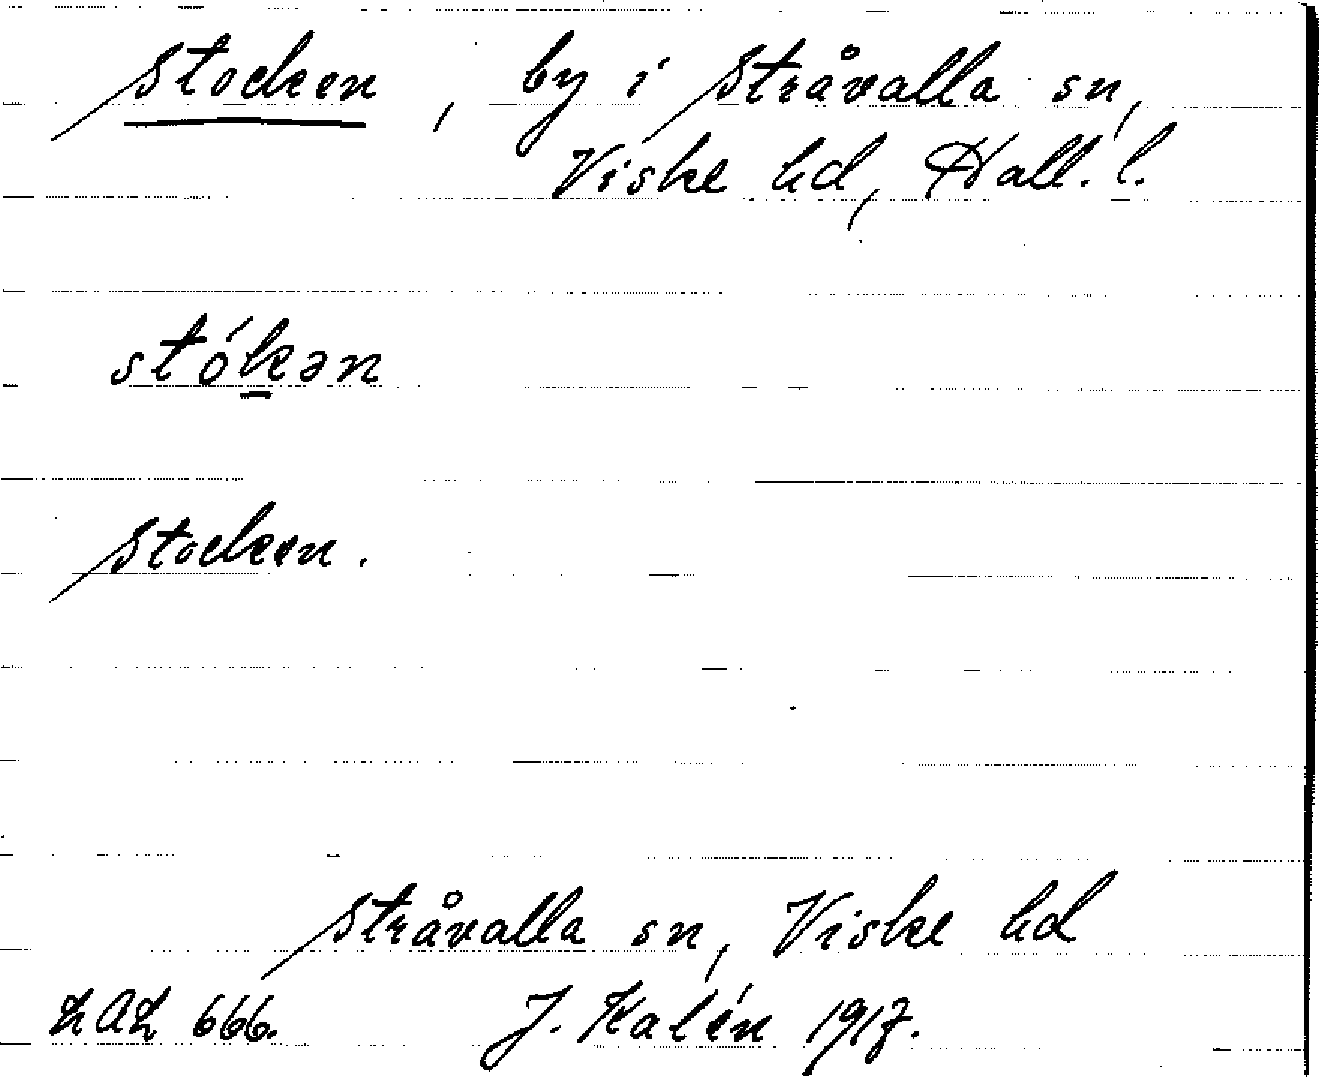 Stocken, by i Stråvalla sn,
Viske hd, Hall. l.
stók̲ən
Stocken.
Stråvalla sn, Viske hd
LAL 666. J. Kalén 1917.